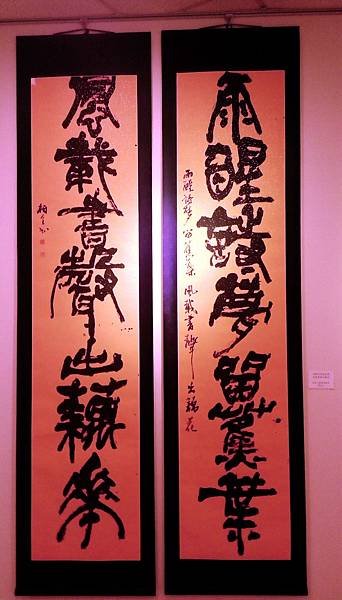 雨醒詩夢留蕉葉
雨醒詩夢留蕉葉 風載書聲出藕花
風載書聲出藕華